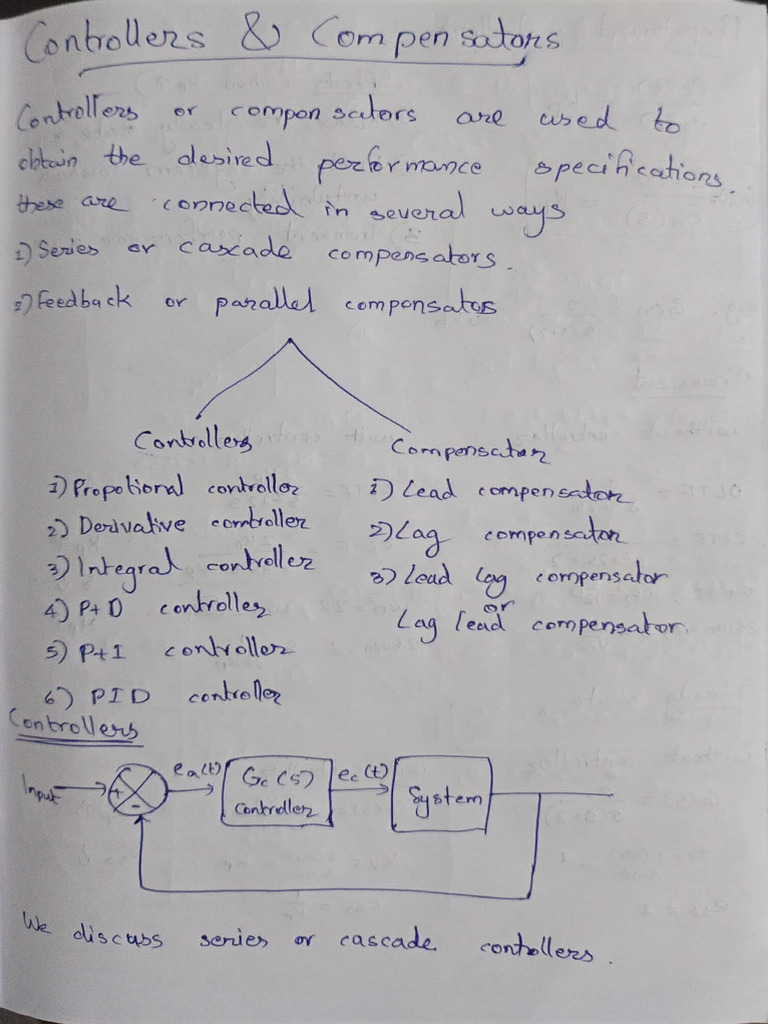 Controllers & Compensators
Controllers or compensators are used to
obtain the desired performance specifications.
these are connected in several ways
1) Series or cascade compensators.
2) Feedback or parallel compensators
Controllers
1) Propotional controller
2) Derivative controller
3) Integral controller
4) P+D controller
5) P+I controller
6) PID controller
Compensator
1) Lead compensator
2) Lag compensator
3) Lead lag compensator
or
Lag lead compensator
Controllers
Input
+
-
ea(t)
Gc(s)
controller
ec(t)
System
We discuss series or cascade controllers.